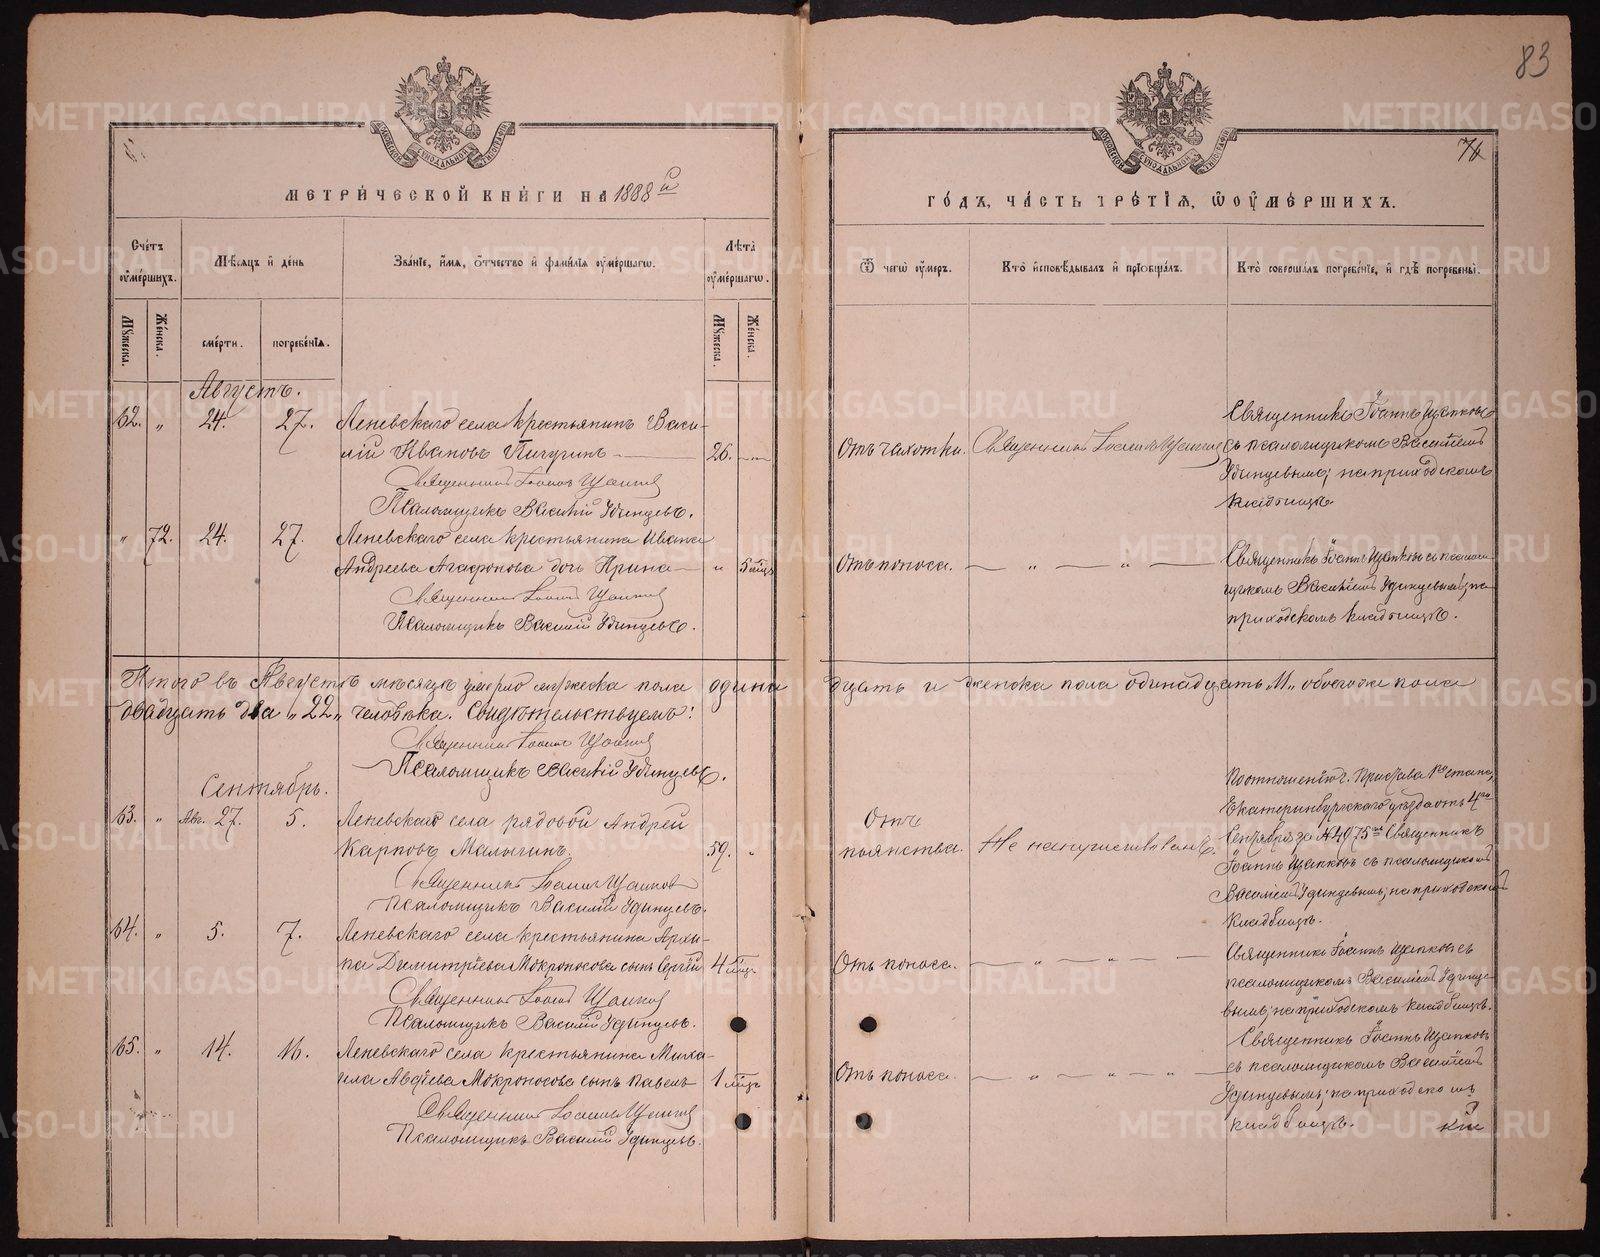 83
76
МЕТРИЧЕСКОЙ КНИГИ НА 1888й
ГОДЪ, ЧАСТЬ ТРЕТІЯ, Ѿ ОУМЕРШИХЪ.
МОСКОВСКОЙ СИНОДАЛЬНОЙ ТИПОГРАФІИ
МОСКОВСКОЙ СИНОДАЛЬНОЙ ТИПОГРАФІИ
Счетъ оумершихъ.
Мѣсяцъ и день
Званіе, имя, отчество и фамилія оумершагѡ.
Лѣта оумершагѡ.
Ѿ чегѡ оумеръ.
Кто исповѣдывалъ и пріобщалъ.
Кто совершалъ погребеніе, и гдѣ погребены.
Мужеска. Женска.
смерти. погребенія.
Мужеска. Женска.
Августъ.
62. " 24. 27. Леневскаго села крестьянинъ Васи-
лій Ивановъ Пичугинъ 26.
Священникъ Іоаннъ Щапковъ
Псаломщикъ Василій Удинцевъ.
Отъ чахотки. Священникъ Іоаннъ Щапковъ
Священникъ Іоаннъ Щапковъ
съ псаломщикомъ Василіемъ
Удинцевымъ; на приходскомъ
кладбищѣ.
" 72. 24. 27. Леневскаго села крестьянина Ивана
Андреева Агафонова дочь Ирина " 5 мѣс.
Священникъ Іоаннъ Щапковъ
Псаломщикъ Василій Удинцевъ.
Отъ поноса. — " — " —
Священникъ Іоаннъ Щапковъ съ псалом-
щикомъ Василіемъ Удинцевымъ; на
приходскомъ кладбищѣ.
Итого въ Августѣ мѣсяцѣ умерло мужеска пола одина
дцать и женска пола одинадцать "11" обоегоже пола
двадцать два "22" человѣка. Свидѣтельствуемъ:
Священникъ Іоаннъ Щапковъ
Псаломщикъ Василій Удинцевъ.
Сентябрь.
63. " Авг. 27. 5. Леневскаго села рядовой Андрей
Карповъ Малыгинъ. 59. "
Священникъ Іоаннъ Щапковъ
Псаломщикъ Василій Удинцевъ.
Отъ
пьянства. Не напутствованъ.
По отношенію г. Пристава 1го стана,
Екатеринбургскаго уѣзда отъ 4го
Сентября за №4975мъ Священникъ
Іоаннъ Щапковъ съ псаломщикомъ
Василіемъ Удинцевымъ; на приходскомъ
кладбищѣ.
64. " 5. 7. Леневскаго села крестьянина Архи-
па Димитріева Мокроносова сынъ Сергій 4 мѣс.
Священникъ Іоаннъ Щапковъ
Псаломщикъ Василій Удинцевъ.
Отъ поноса. — " — " — " —
Священникъ Іоаннъ Щапковъ съ
псаломщикомъ Василіемъ Удинце-
вымъ; на приходскомъ кладбищѣ.
65. " 14. 16. Леневскаго села крестьянина Миха-
ила Авдіева Мокроносова сынъ Павелъ 1 мѣс.
Священникъ Іоаннъ Щапковъ
Псаломщикъ Василій Удинцевъ.
Отъ поноса. — " — " — " —
Священникъ Іоаннъ Щапковъ
съ псаломщикомъ Василіемъ
Удинцевымъ; на приходскомъ
кладбищѣ.
METRIKI.GASO-URAL.RU